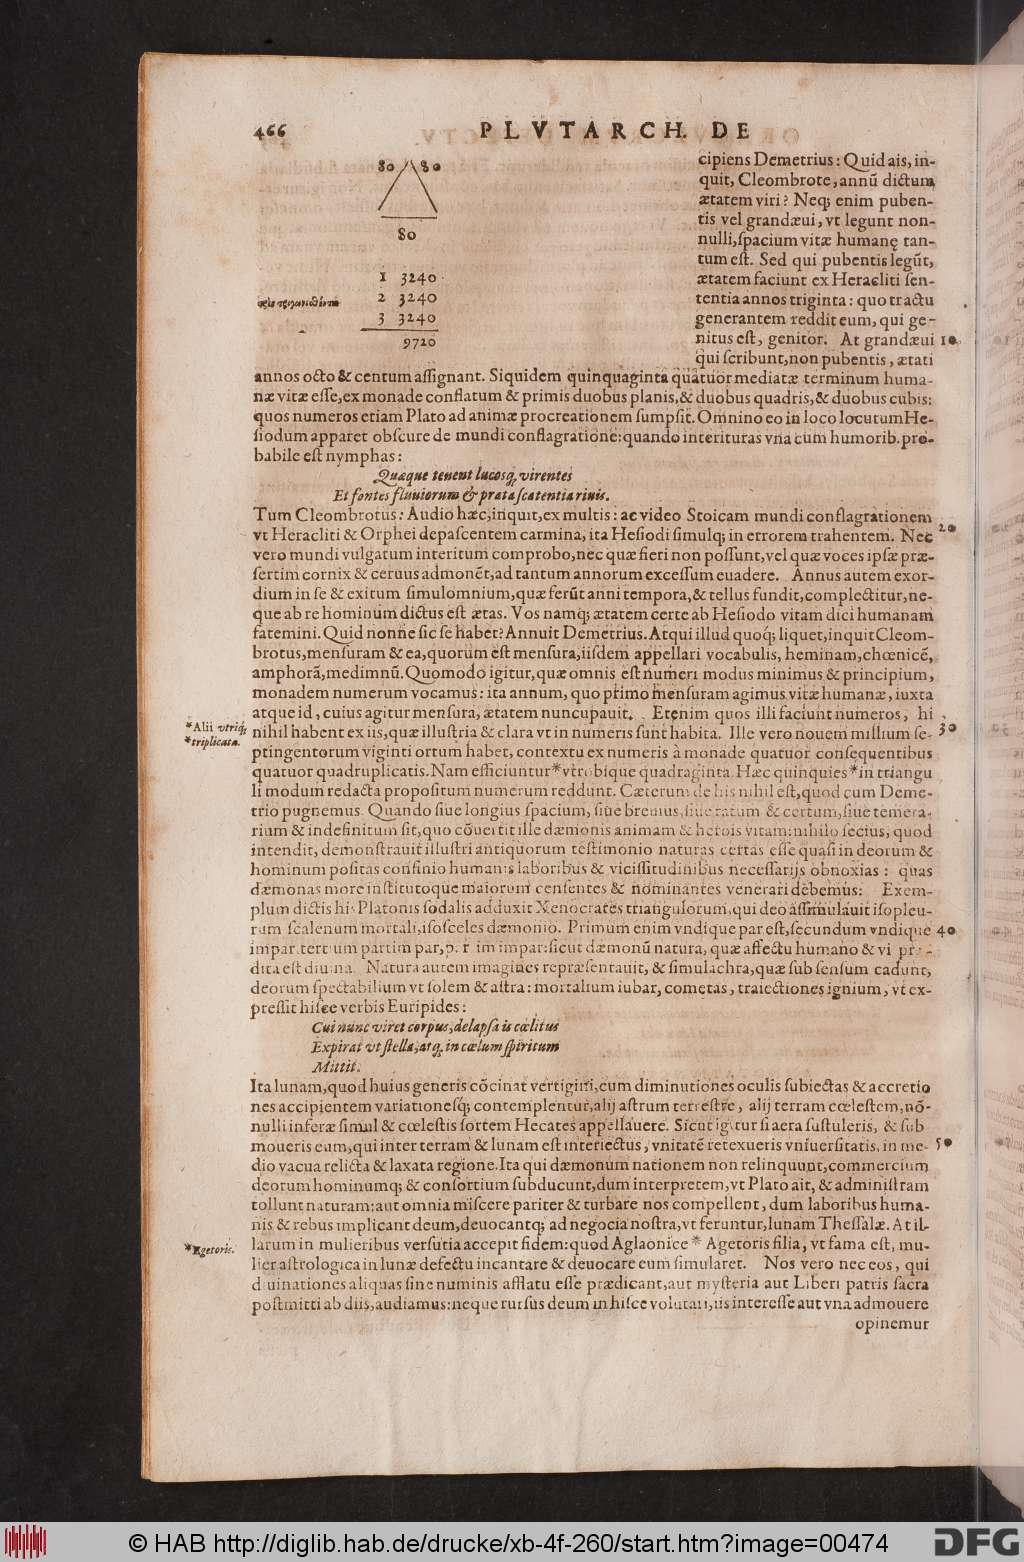 466
PLVTARCH. DE
80 80
80
1 3240
2 3240
3 3240
9720
cipiens Demetrius: Quid ais, in-
quit, Cleombrote, annū dictum
ætatem viri? Neq; enim puben-
tis vel grandæui, vt legunt non-
nulli, spacium vitæ humanę tan-
tum est. Sed qui pubentis legūt,
ætatem faciunt ex Heracliti sen-
tentia annos triginta: quo tractu
generantem reddit eum, qui ge-
nitus est, genitor. At grandæui 10
qui scribunt, non pubentis, ætati
annos octo & centum assignant. Siquidem quinquaginta quatuor mediatæ terminum huma-
næ vitæ esse, ex monade conflatum & primis duobus planis, & duobus quadris, & duobus cubis:
quos numeros etiam Plato ad animæ procreationem sumpsit. Omnino eo in loco locutum He-
siodum apparet obscure de mundi conflagratione: quando interituras vna cum humorib. pro-
babile est nymphas:
Quæque tenent lucosq, virentes
Et fontes fluuiorum & prata scatentia riuis.
Tum Cleombrotus: Audio hæc, inquit, ex multis: ac video Stoicam mundi conflagrationem
vt Heracliti & Orphei depascentem carmina, ita Hesiodi simulq; in errorem trahentem. Nec 20
vero mundi vulgatum interitum comprobo, nec quæ fieri non possunt, vel quæ voces ipsæ præ-
sertim cornix & ceruus admonēt, ad tantum annorum excessum euadere. Annus autem exor-
dium in se & exitum simulomnium, quæ ferūt anni tempora, & tellus fundit, complectitur, ne-
que ab re hominum dictus est ætas. Vos namq; ætatem certe ab Hesiodo vitam dici humanam
fatemini. Quid nonne sic se habet? Annuit Demetrius. Atqui illud quoq; liquet, inquit Cleom-
brotus, mensuram & ea, quorum est mensura, iisdem appellari vocabulis, heminam, chœnicē,
amphorā, medimnū. Quomodo igitur, quæ omnis est numeri modus minimus & principium,
monadem numerum vocamus: ita annum, quo primo mensuram agimus vitæ humanæ, iuxta
atque id, cuius agitur mensura, ætatem nuncupauit. Etenim quos illi faciunt numeros, hi
*Alii vtriq;
*triplicata.
nihil habent ex iis, quæ illustria & clara vt in numeris sunt habita. Ille vero nouem millium se- 30
ptingentorum viginti ortum habet, contextu ex numeris à monade quatuor consequentibus
quatuor quadruplicatis. Nam efficiuntur * vtrobique quadraginta. Hæc quinquies * in triangu
li modum redacta propositum numerum reddunt. Cæterum de his nihil est, quod cum Deme-
trio pugnemus. Quando siue longius spacium, siue breuius, siue ratum & certum, siue temera-
rium & indefinitum sit, quo cōuertit ille dæmonis animam & herois vitam: nihilo secius, quod
intendit, demonstrauit illustri antiquorum testimonio naturas certas esse quasi in deorum &
hominum positas confinio humanis laboribus & vicissitudinibus necessarijs obnoxias: quas
dæmonas more institutoque maiorum censentes & nominantes venerari debemus: Exem-
plum dictis his Platonis sodalis adduxit Xenocrates triangulorum, qui deo assimulauit isopleu-
rum scalenum mortali, isosceles dæmonio. Primum enim vndique par est, secundum vndique 40
impar, tertium partim par, partim impar: sicut dæmonū natura, quæ affectu humano & vi præ-
dita est diuina. Natura autem imagines repræsentauit, & simulachra, quæ sub sensum cadunt,
deorum spectabilium vt solem & astra: mortalium iubar, cometas, traiectiones ignium, vt ex-
pressit hisce verbis Euripides:
Cui nunc viret corpus, delapsa is cœlitus
Expirat vt stella, atq, in cœlum spiritum
Mittit.
Ita lunam, quod huius generis cōcinat vertigini, cum diminutiones oculis subiectas & accretio
nes accipientem variationesq; contemplentur, alij astrum terrestre, alij terram cœlestem, nō-
nulli inferæ simul & cœlestis sortem Hecates appellauere. Sicut igitur si aera sustuleris, & sub
moueris eum, qui inter terram & lunam est interiectus, vnitatē retexueris vniuersitatis, in me- 50
dio vacua relicta & laxata regione. Ita qui dæmonum nationem non relinquunt, commercium
deorum hominumq; & consortium subducunt, dum interpretem, vt Plato ait, & administram
tollunt naturam: aut omnia miscere pariter & turbare nos compellent, dum laboribus huma-
nis & rebus implicant deum, deuocantq; ad negocia nostra, vt feruntur, lunam Thessalæ. At il-
*Hegetoris.
larum in mulieribus versutia accepit fidem: quod Aglaonice * Agetoris filia, vt fama est, mu-
lier astrologica in lunæ defectu incantare & deuocare eum simularet. Nos vero nec eos, qui
diuinationes aliquas sine numinis afflatu esse prædicant, aut mysteria aut Liberi patris sacra
postmitti ab diis, audiamus: neque rursus deum in hisce volutari, iis interesse aut vna admouere
opinemur
© HAB http://diglib.hab.de/drucke/xb-4f-260/start.htm?image=00474
DFG